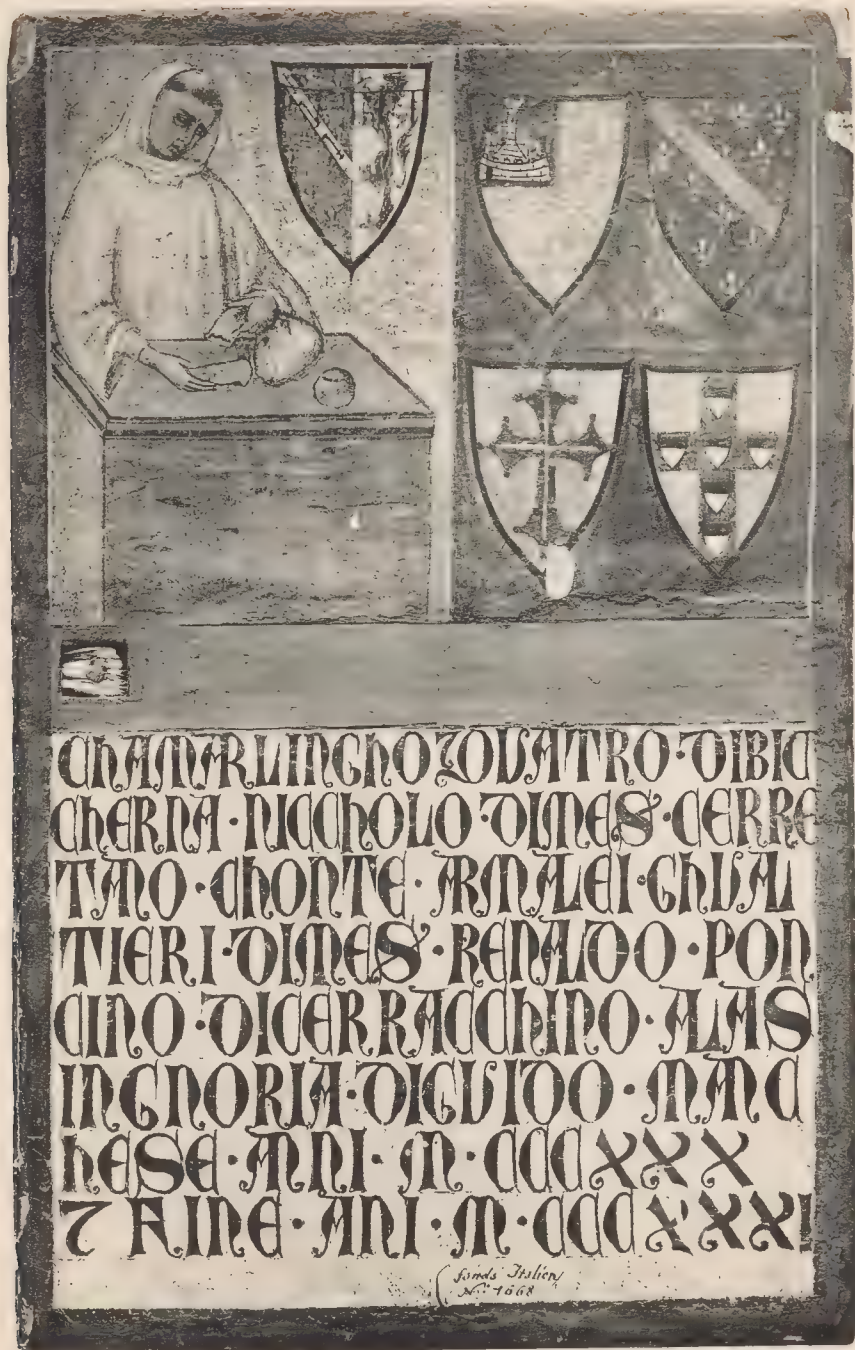 CHAMARLINGHO ZOVATRO · DIBIC
CHERNA · NICCHOLO · DIMES · CERRE
TANO · CHONTE · ARMALEI · GHVAL
TIERI · DIMES · RENALDO · PON
CINO · DICERRACCHINO · ALAS
INGNORIA · DIGVIDO · MAC
HESE · ANNI · M · CCCXXX
7 FINE · ANI · M · CCCXXXI
fonds Italien
N.º 1668